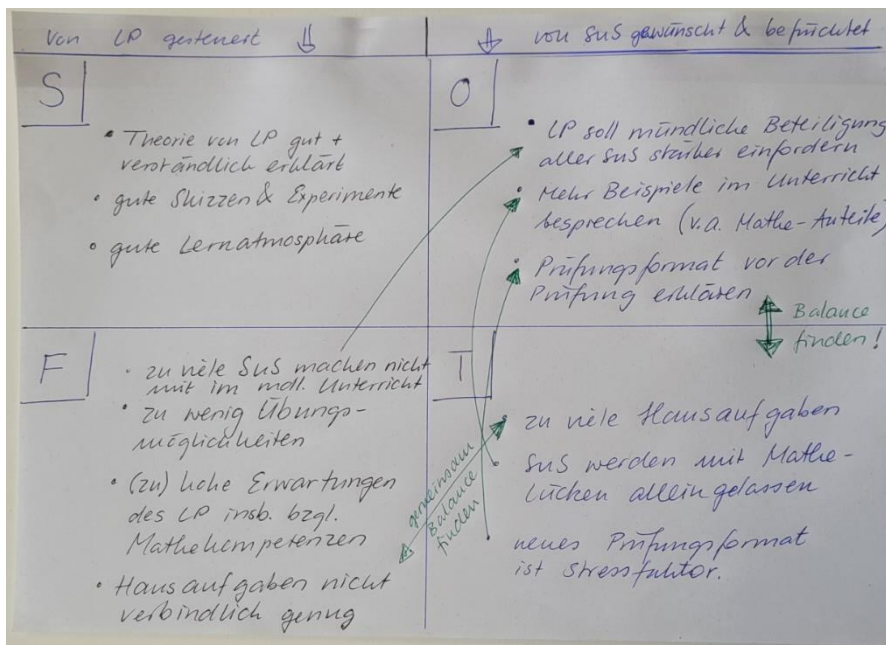 Von LP gesteuert ⇓
⇓ von SuS gewünscht & befürchtet
S
• Theorie von LP gut +
verständlich erklärt
• gute Skizzen & Experimente
• gute Lernatmosphäre
O
• LP soll mündliche Beteiligung
aller SuS stärker einfordern
• Mehr Beispiele im Unterricht
besprechen (v.a. Mathe-Anteile)
• Prüfungsformat vor der
Prüfung erklären
Balance
finden!
F
• zu viele SuS machen nicht
mit im mdl. Unterricht
• zu wenig Übungs-
möglichkeiten
• (zu) hohe Erwartungen
des LP insb. bzgl.
Mathekompetenzen
• Hausaufgaben nicht
verbindlich genug
gemeinsam
Balance
finden
T
• zu viele Hausaufgaben
SuS werden mit Mathe-
Lücken allein gelassen
neues Prüfungsformat
ist Stressfaktor.